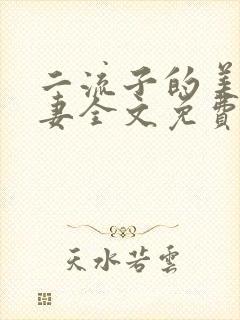 二流子的美
妻全文免費
天水若雲